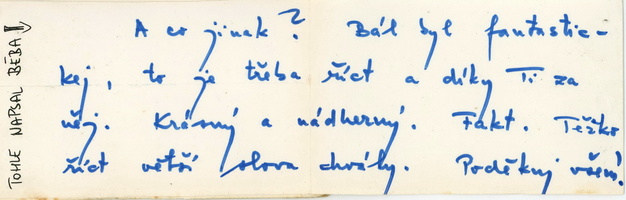 TOHLE NAPSAL BÉBA!
A co jinak? Bál byl fantastic-
kej, to je třeba říct a díky Ti za
něj. Krásný a nádherný. Fakt. Těžko
říct větší slova chvály. Poděkuj všem!